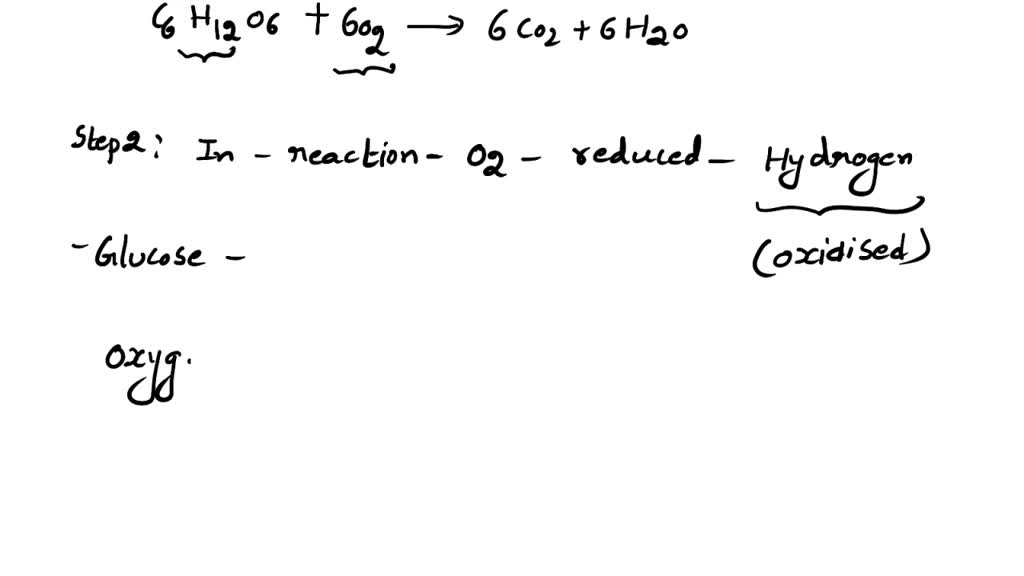 C6 H12 O6 + 6O2 → 6 CO2 + 6 H2O
Step2: In - reaction - O2 - reduced - Hydrogen
(oxidised)
- Glucose -
oxyg.